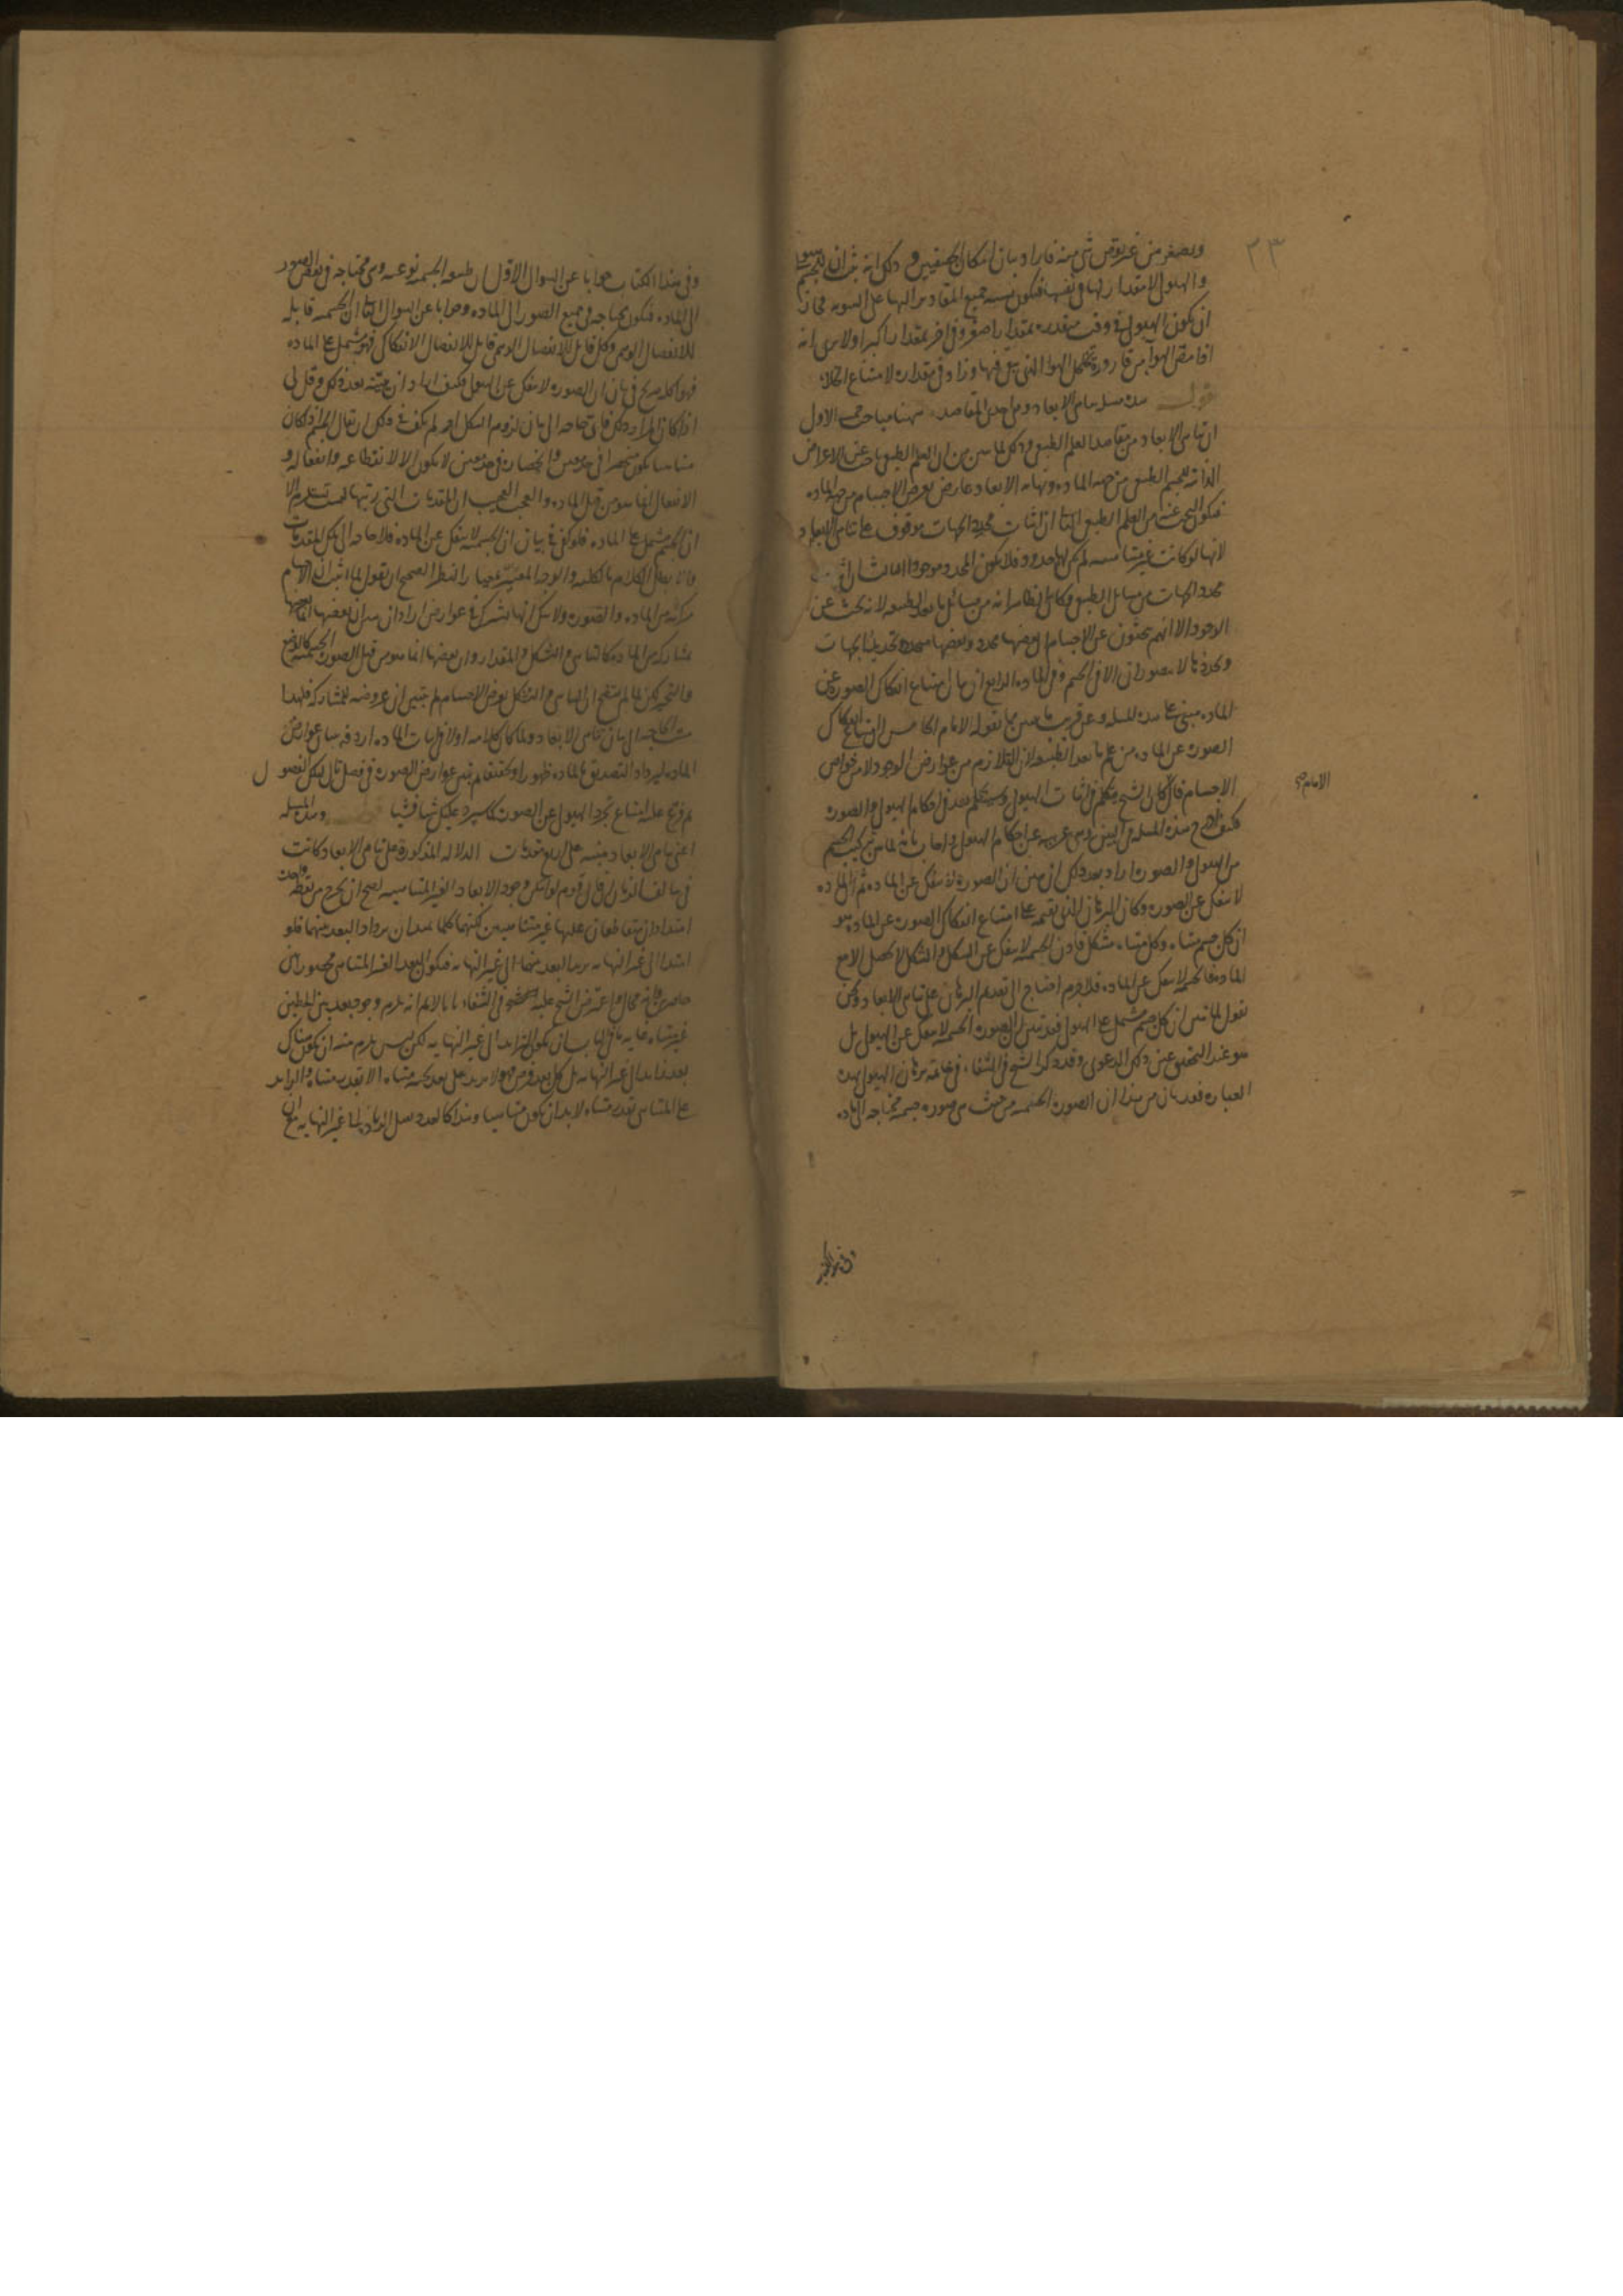 ٢٣
ويصغر من غير نقص شي منه فاراد بيان امكان الحقيقيين و ذلك انه ثبت ان للجسم هيولى
والهيولى لا مقدار لها في نفسها فيكون نسبة جميع المقادير اليها على السويه فجاز
ان يكون الهيولى في وقت متقدره بمقدار اصغر وفي اخر بمقدار اكبر اولا يرى انه
اذا مص الهوآ من قارورة تخلخل الهوا الذي بقي فيها وزاد في مقداره لامتناع الخلاء
قوله هذه مسله تناهي الابعاد وهي احدى المقاصد ههنا مباحث الاول
ان تناهي الابعاد من مقاصد العلم الطبيعي وذلك لما تبين من ان العلم الطبيعي باحث عن الاعراض
الذاتيه للجسم الطبيعي من جهه الماده ونهايه الابعاد عارض يعرض الاجسام من جهه الماده
فيكون البحث عنه من العلم الطبيعي الثاني ان اثبات محدد الجهات موقوف على تناهي الابعاد
لانها لو كانت غير متناهيه لم يكن لها حدود فلا يكون المحدد موجودا الثالث ان اثبات
محدد الجهات من مسائل الطبيعي وكان الظاهر انه من مسائل ما بعد الطبيعه لانه بحث عن
الوجود الا انهم يبحثون عن الاجسام ان بعضها محدد وبعضها متحدده تحديد الجهات
وتحددها لا يتصور ان الا في الجسم وفي الماده الرابع ان بيان امتناع انفكاك الصوره عن
الماده مبني على هذه المسله وعن قريب يتبين بما نقوله الامام الخامس ان امتناع انفكاك
الصوره عن الماده من علم ما بعد الطبيعه لان التلازم من عوارض الوجود لا من خواص
الاجسام فان كان الشيخ يتكلم في اثبات الهيولى وسيتكلم بعد في احكام الهيولى والصوره
الامام
فكيف ادرج هذه المسله في البين وهي غريبه عن احكام الهيولى واجاب بانه لما بين تركيب الجسم
من الهيولى والصوره اراد بعد ذلك ان يبين ان الصوره لا تنفك عن الماده ثم الماده
لا تنفك عن الصوره وكان البرهان الذي يقيمه على امتناع انفكاك الصوره عن الماده هو
ان كل جسم متناه وكل متناه مشكل فاذن الجسميه لا تنفك عن الشكل والشكل لا يحصل الا مع
الماده فالجسميه لا تنفك عن الماده فلا جرم احتاج الى تقديم البرهان على تناهي الابعاد ونحن
نقول لما تبين ان كل جسم مشتمل على الهيولى فقد تبين ان الصوره الجسميه لا تنفك عن الهيولى بل
هو عند التحقيق عين ذلك الدعوى وقد ذكر الشيخ في الشفاء في خاتمه برهان الهيولى بهذه
العباره فقد بان من هذا ان الصوره الجسميه من حيث هي صوره جسميه محتاجه الى ماده
وفي هذا الكتاب جوابا عن السوال الاول ان طبيعه الجسميه نوعيه وهي محتاجه في بعض الصور
الى الماده فيكون محتاجه في جميع الصور الى الماده وجوابا عن السوال الثاني ان الجسميه قابله
للانفصال الوهمي وكل قابل للانفصال الوهمي قابل للانفصال الانفكاكي فهو مشتمل على الماده
فهذا كله صريح في بيان ان الصوره لا تنفك عن الهيولى فكيف اراد ان يبينه بعد ذلك وقل لي
اذا كان المراد ذلك فاي حاجه الى بيان لزوم الشكل الم يكف في ذلك ان يقال الجسم اذا كان
متناهيا يكون منحصرا في حدود وانحصاره في حدود لا يكون الا لانقطاعه وانفعاله و
الانفعال انما هو من قبل الماده والعجب العجيب ان المقدمات التي رتبها ليست تستلزم الا
ان الجسم مشتمل على الماده فلو كفى في بيان ان الجسميه لا تنفك عن الماده فلا حاجه الى تلك المقدمات
والا بطل الكلام بالكليه والوجه المعتبر بمعيار النظر الصحيح ان نقول لما اثبت ان الاجسام
مركبه من الماده والصوره ولا شك انها يشترك في عوارض اراد ان يبين ان بعضها انما يعرضها
بمشاركه من الماده كالتناهي والشكل والمقدار وان بعضها انما هو من قبل الصوره الجسميه كالوضع
والتحيز لكن لما لم يتضح ان التناهي والتشكل يعرض الاجسام لم يتبين ان عروضه للمشاركه فلهذا
مست الحاجه الى بيان تناهي الابعاد ولما كان كلامه اولا في اثبات الماده اردفه ببيان عوارض
الماده ليزداد التصديق بالماده ظهورا وتحققا ثم بين عوارض الصوره في فصل تال لتلك الفصول
ثم فرع عليه امتناع تجرد الهيولى عن الصوره كما سيرد عليك شيا فشيا وهذه المسله
اعني تناهي الابعاد مبنيه على اربع مقدمات الدلاله المذكورة على تناهي الابعاد كانت
في سالف الزمان ان قال قوم لو امكن وجود الابعاد الغير المتناهيه لصح ان يخرج من نقطه واحده
امتدادان متقاطعان عليها غير متناهيين كلما يمتدان يزداد البعد بينهما فلو
امتدا الى غير النهايه يزيد البعد بينهما الى غير النهايه فيكون البعد الغير المتناهي محصورا بين
حاصرين وانه محال واعترض الشيخ عليه في الشفاء بانا لا نم انه يلزم وجود بعد بين الخطين
غير متناه غايه ما في الباب ان يكون التزايد الى غير النهايه لكن ليس يلزم منه ان يكون هناك
بعد زايد الى غير النهايه بل كل بعد فرض فهو لا يزيد على بعد تحته متناه الا بقدر متناه والزايد
على المتناهي بقدر متناه لا بد ان يكون متناهيا وهذا كالعدد يقبل الزياده الى غير النهايه مع ان